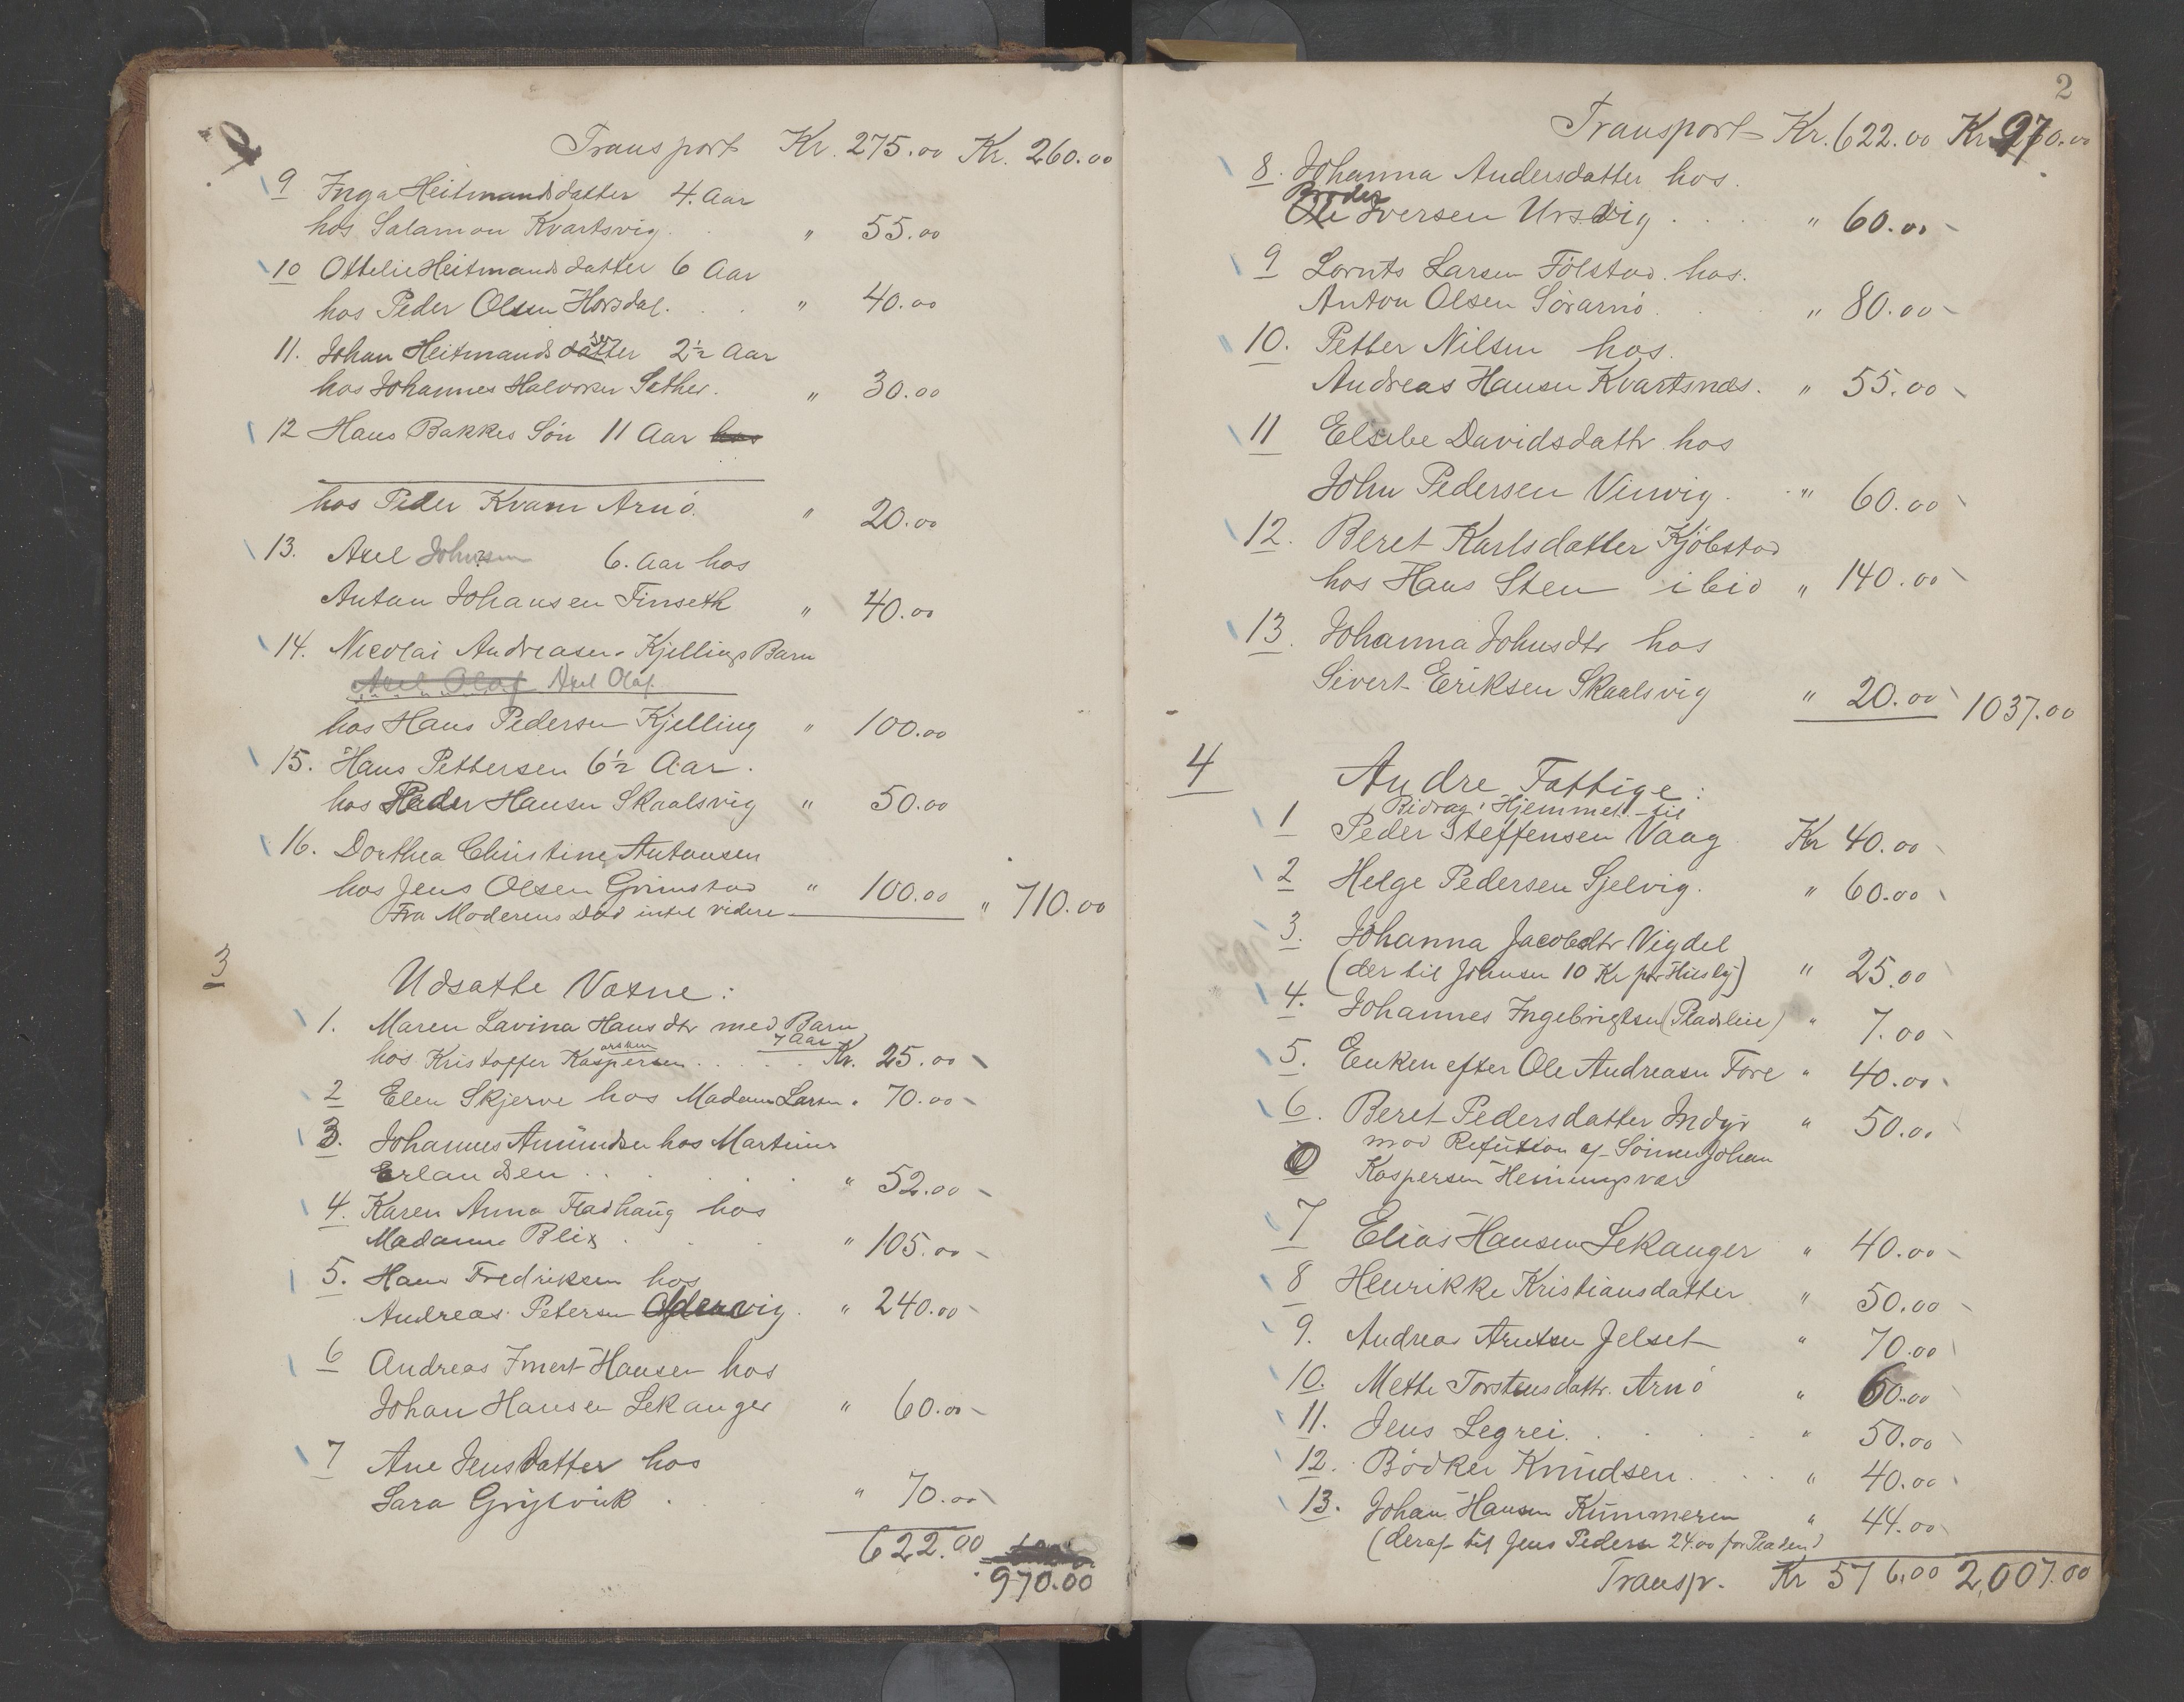 Transport Kr. 275.00 Kr. 260.00
9 Inga Heitmandsdatter 4. Aar
hos Salamon Kvartsvig. " 55.00
10 Ottelie Heitmandsdatter 6 Aar
hos Peder Olsen Horsdal. " 40.00
11. Johan Heitmandsdatter sen 2½ Aar
hos Johannes Halvorsen Sæther. " 30.00
12 Hans Bakkes Søn 11 Aar hos
hos Peder Kvam Arnö. " 20.00
13. Axel Johnsen 6. Aar hos
Anton Johansen Finseth " 40.00
14. Nicolai Andreasen Kjellings Barn
Axel Olaf Axel Olaf
hos Hans Pedersen Kjelling " 100.00
15. Hans Pettersen 6½ Aar.
hos Peder Hansen Skaalsvig " 50.00
16. Dorthea Christine Antonsen
hos Jens Olsen Grimstad " 100.00 " 710.00
Fra Moderens Död intet videre
3
Udsatte Voxne:
1. Maren Lavina Hansdtr med Barn
7 Aar
hos Kristoffer Kaspersen Kr. 25.00
2 Elen Skjerve hos Madam Larsen " 70.00
3. Johannes Amundsen hos Martinus
Erlandsen " 52.00
4. Karen Anna Fladhaug hos
Madame Blix " 105.00
5. Hans Fredriksen hos
Andreas Petersen " 240.00
6 Andreas Imert Hansen hos
Johan Hansen Lekanger " 60.00
7 Ane Jensdatter hos
Sara Grytvik " 70.00
622.00
970.00
2
Transport Kr. 622.00 Kr 970.00
8. Johanna Andersdatter hos
Broder
Ole Iversen Ursvig " 60.00
9 Lornts Larsen Fölstad hos.
Anton Olsen Sörarnö " 80.00
10. Petter Nilsen hos.
Andreas Hansen Kvartsnæs. " 55.00
11 Elsebe Davidsdattr hos
John Pedersen Vinvig. " 60.00
12. Beret Karlsdatter Kjöbstad
hos Hans Sten ibid " 140.00
13. Johanna Johnsdtr hos
Sivert Eriksen Skaalsvig " 20.00 1037.00
4
Andre Fattige:
Bidrag i Hjemmet til
1 Peder Steffensen Vaag Kr 40.00
2 Helge Pedersen Sjelvig. " 60.00
3. Johanna Jacobsdtr Vigdel
(der til Johnsen 10 Kr for Husly) " 25.00
4. Johannes Ingebrigtsen (Pladsleie) " 7.00
5. Enken efter Ole Andreasen Fore " 40.00
6. Beret Pedersdatter Indyr " 50.00
mod Refusion af Sönnen Johan
Kaspersen Henningsvær
7 Elias Hansen Lekanger " 40.00
8 Henrikke Kristiansdatter " 50.00
9. Andreas Arntsen Jelset " 70.00
10. Methe Torstensdattr. Arnö " 60.00
11. Jens Legrei. " 50.00
12. Bödker Knudsen " 40.00
13. Johan Hansen Kummeren " 44.00
(deraf til Jens Pedersen 24.00 for Pladsen)
Transp. Kr 576.00 2,007.00